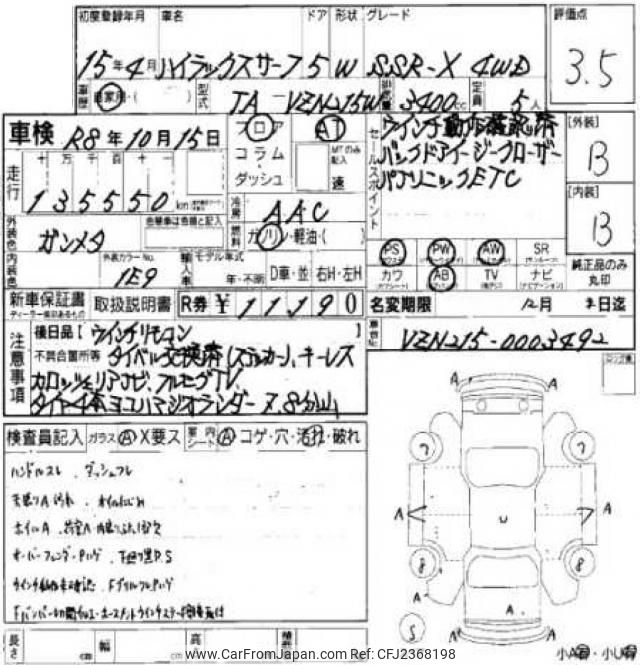 初度登録年月 車名 ドア 形状 グレード 評価点
15年4月 ハイラックスサーフ 5 W SSR-X 4WD 3.5
車歴 自家用・( ) 型式 TA-VZN215W 排気量 3400cc 定員 5人
車検 R8年10月15日 フロア AT
コラム MTのみ記入
ダッシュ 速
セールスポイント ウインチ動作確認済
バックドアイージークローザー
パナソニックETC
[外装] B
[内装] B
走行 十 万 千 百 十 一
135550 km
冷房 AAC
燃料 ガソリン・軽油・( )
外装色 ガンメタ 色替車は色替と記入
内装色 外装カラーNo. 1E9
輸入車 モデル年式 年・不明 D車・並 右H・左H
PS PW AW SR
カワ AB TV ナビ
純正品のみ丸印
新車保証書 取扱説明書 R券 ¥11190
ディーラー印のあるもの
名変期限 12月 末日迄
車台No. VZN215-0003492
注意事項 後日品[ウインチリモコン ]
不具合箇所等 タイベル交換済(ステッカー)、キーレス
カロッツェリアナビ、フルセグTV
タイヤ4本ヨコハマジオランダー 7.8分山
検査員記入 ガラス A X要ス 室内シート A コゲ・穴・汚れ・破れ
ハンドルスレ
オーバーフェンダー
下廻り黒P.S
A A
7 7
A A
U
8 8
A A
A
A A
S
長さ cm 幅 cm 高 積
小A有・小U有
www.CarFromJapan.com Ref: CFJ2368198